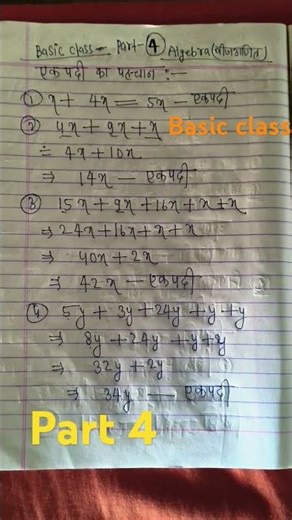 Basic class - Part - 4 Algebra (बीजगणित)
एकपदी का पहचान :-
① x + 4x = 5x - एकपदी
② 4x + 9x + x Basic class
= 4x + 10x
⇒ 14x - एकपदी
③ 15x + 9x + 16x + x + x
⇒ 24x + 16x + x + x
⇒ 40x + 2x
⇒ 42x - एकपदी
④ 5y + 3y + 24y + y + y
⇒ 8y + 24y + y + y
⇒ 32y + 2y
⇒ 34y - एकपदी
Part 4